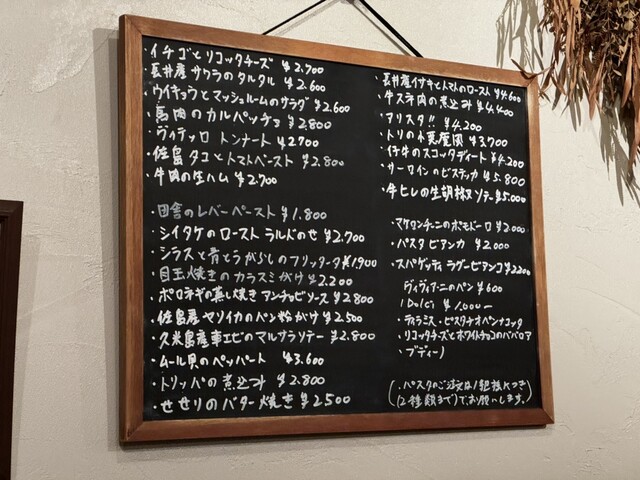 ・イチゴとリコッタチーズ ¥2,700
・長井産サワラのタルタル ¥2,600
・ウイキョウとマッシュルームのサラダ ¥2,600
・馬肉のカルパッチョ ¥2,800
・ヴィテッロ トンナート ¥2700
・佐島タコとトマトペースト ¥2,800
・牛肉の生ハム ¥2,700
・田舎のレバーペースト ¥1,800
・シイタケのロースト ラルドのせ ¥2,700
・シラスと青とうがらしのフリッタータ ¥1,900
・目玉焼きのカラスミがけ ¥2,200
・ポロネギの蒸し焼き アンチョビソース ¥2800
・佐島産ヤリイカのパン粉がけ ¥2500
・久米島産車エビのマルサラソテー ¥2.800
・ムール貝のペッパート ¥3,600
・トリッパの煮込み ¥2,800
・せせりのバター焼き ¥2500
・長井産イサキとトマトのロースト ¥4600
・牛スネ肉の煮込み ¥4,400
・アリスタ!! ¥4,200
・トリの小悪魔風 ¥3,700
・仔牛のスコッタディート ¥4,200
・サーロインのビステッカ ¥5,800
・牛ヒレの生胡椒ソテー ¥5,000
・マケロンチーニのポモドーロ ¥2,000
・パスタ ビアンカ ¥2,000
・スパゲッティ ラグービアンコ ¥2200
ヴィヴィアーニのパン ¥600
1Dolci ¥1,000ー
・ティラミス・ピスタチオパンナコッタ
・リコッタチーズとホワイトチョコのババロア
・ブディーノ
(・パスタのご注文は1組様につき
(2種類まで)でお願いします。)